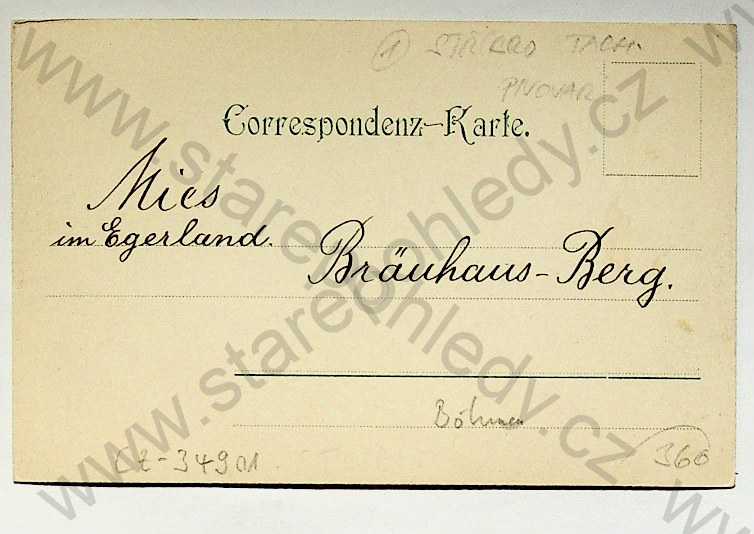 1 STŘÍBRO TACH.
PIVOVAR
Correspondenz-Karte.
Mies
im Egerland.
Bräuhaus-Berg.
Böhmen
CZ-34901
360
www.starepohledy.cz
www.starepohledy.cz